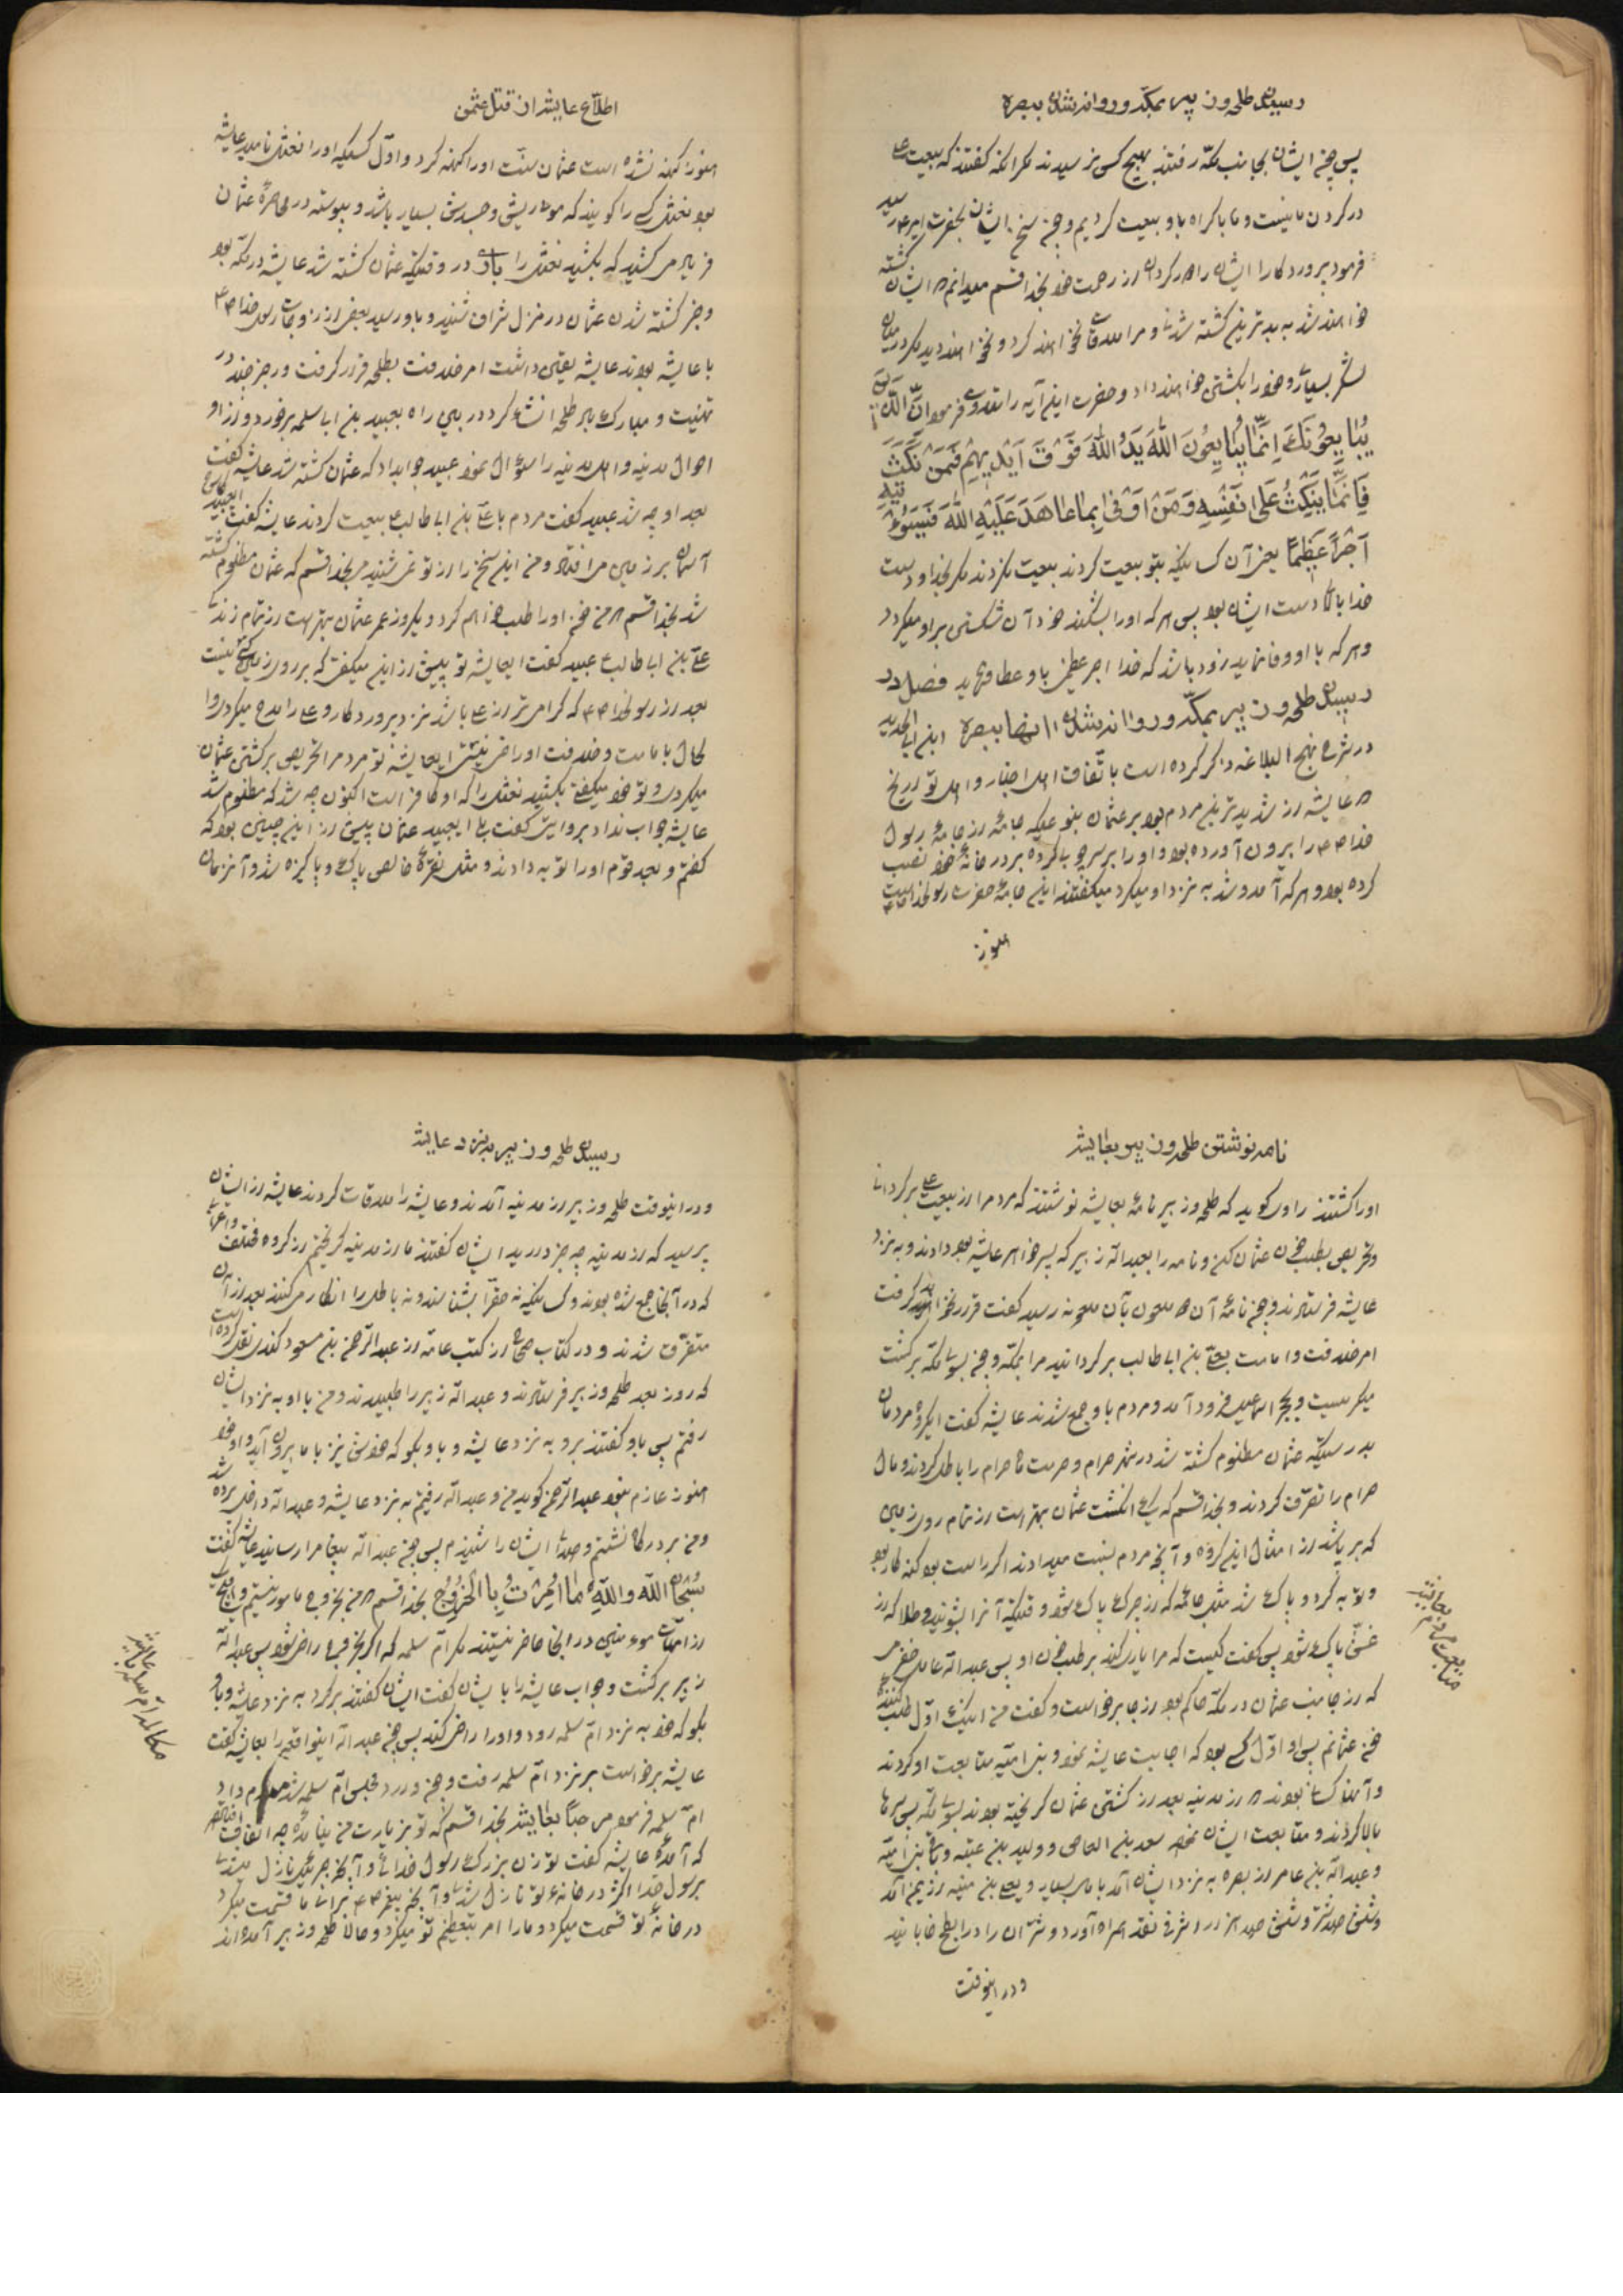 رسیدن طلحه و زبیر بمکه و روانه شدن ببصره
پس چون ایشان بجانب مکه رفتند بهیچ کس نرسیدند مگر آنکه گفتند که بیعت علی
در گردن ما نیست و ما باکراه باو بیعت کردیم و چون سخن ایشان بحضرت امیر ع رسید
فرمود پروردگارا ایشان را دور گردان از رحمت خود بخدا قسم میدانم که ایشان کشته
خواهند شد به بدترین کشته شدنی و مرا ملاقات نخواهند کرد و نخواهند دید مگر در میان
لشکر بسیار و خود را بکشتن خواهند داد و حضرت این آیه را تلاوت فرمود اِنَّ الَّذینَ
یُبایِعُونَکَ اِنَّما یُبایِعُونَ اللّهَ یَدُ اللّهِ فَوْقَ اَیْدیهِمْ فَمَنْ نَکَثَ
فَاِنَّما یَنْکُثُ عَلی نَفْسِهِ وَمَنْ اَوْفی بِما عاهَدَ عَلَیْهُ اللّهَ فَسَیُؤْتیهِ
اَجْراً عَظیماً یعنی آن کسانیکه بتو بیعت کردند بیعت نکردند مگر بخدا و دست
خدا بالای دست ایشان بود پس هر که او را بشکند خود آن شکستن بر او میگردد
و هر که با او وفا نماید زود باشد که خدا اجر عظیمی باو عطا فرماید فصل در
رسیدن طلحه و زبیر بمکه و روانه شدن انها ببصره ابن ابی الحدید
در شرح نهج البلاغه ذکر کرده است باتفاق اهل اخبار و اهل تواریخ
که عایشه از شدیدترین مردم بود بر عثمان بنوعیکه جامهٔ از جامهٔ رسول
خدا ص را بیرون آورده بود و او را بر سر چوبی کرده بر در خانهٔ خود نصب
کرده بود و هر که آمد و شد به نزد او میکرد میگفتند این جامهٔ حضرت رسول خداست
هنوز
اطلاع عایشه از قتل عثمن
هنوز کهنه نشده است عثمان سنت او را کهنه کرد و اول کسیکه او را نعثل نامید عایشه
بود نعثل کسی را گویند که موی ریش و جسدش بسیار باشد و پیوسته در محاصرهٔ عثمان
فریاد میکشید که بکشید نعثل را باری در وقتیکه عثمان کشته شد عایشه در مکه بود
و خبر کشته شدن عثمان در منزل شراف شنید و باو رسید بعضی از زوجات رسول خدا ص
با عایشه بودند عایشه یقین داشت امر خلافت بطلحه قرار گرفت و رجز چند در
تهنیت و مبارک باد طلحه انشاء کرد در بین راه بعبید بن ابا سلمه برخورد و از او
احوال مدینه و اهل مدینه را سؤال نمود عبید جواب داد که عثمان کشته شد عایشه گفت
بعد او چه شد عبید گفت مردم با علی بن ابی طالب بیعت کردند عایشه گفت ای عبید کاش
آسمان بر زمین می افتاد و من این سخن را از تو نمی شنیدم بخدا قسم که عثمان مظلوم کشته
شد بخدا قسم که من خون او را طلب خواهم کرد و یکروز عمر عثمان بهتر است از تمام زندگی
علی بن ابا طالب عبید گفت ای عایشه تو پیش از این میگفتی که بر روی زمین کسی نیست
بعد از رسول خدا ص که گرامی تر از علی باشد نزد پروردگار و علی را مدح میکردی و
حال بامامت و خلافت او راضی نیستی ای عایشه تو مردم را تحریص بر کشتن عثمان
میکردی و تو خود میگفتی بکشید نعثل را که او کافر است اکنون چه شد که مظلوم شد
عایشه جواب نداد بروایتی گفت بلی ای عبید عثمان پیش از این چنین بود که
گفتم و بعد قوم او را توبه دادند و مثل نقرهٔ خالص پاک و پاکیزه شد و آنزمان
نامه نوشتن طلحه و زبیر بعایشه
او را کشتند راوی گوید که طلحه و زبیر نامهٔ بعایشه نوشتند که مردم را از بیعت علی برگردان
و تحریص بطلب خون عثمان کن و نامه را بعبدالله زبیر که پسر خواهر عایشه بود دادند و به نزد
عایشه فرستادند و چون نامهٔ آن دو ملعون بآن ملعونه رسید گفت قرار نخواهد گرفت
امر خلافت و امامت بعلی بن ابی طالب برگردانید مرا بمکه و چون بسوی مکه برگشت
میگریست و بحجر اسماعیل فرود آمد و مردم باو جمع شدند عایشه گفت ایگروه مردمان
بدرستیکه عثمان مظلوم کشته شد در شهر حرام و حرمت ماه حرام را باطل کردند و مال
حرام را تصرف کردند و بخدا قسم که یک انگشت عثمان بهتر است از تمام روی زمین
که پر باشد از امثال این گروه و آنچه مردم نسبت میدادند اگر راست بود گنه کار بود
و توبه کرد و پاک شد مثل جامه که از چرک پاک شود وقتیکه آنرا بشویند و طلا که از
غش پاک شود پس گفت کیست که مرا یاری کند بر طلب خون او پس عبدالله عامر حضرمی
که از جانب عثمان در مکه حاکم بود از جا برخواست و گفت من اینک اول طلب کنندهٔ
خون عثمانم پس او اول کسی بود که اجابت عایشه نمود و بنی امیه متابعت او کردند
و آنها کسانی بودند که از مدینه بعد از کشتن عثمان گریخته بودند بسوی مکه پس سرها
بالا کردند و متابعت ایشان نمود سعد بن العاص و ولید بن عتبه و تمام بنی امیه
و عبدالله بن عامر از بصره به نزد ایشان آمد با مال بسیار و یعلی بن منیه از یمن آمد
و شش صد شتر و شش صد هزار اشرفی نقد همراه آورد و شتران را در ابطح خابانید
متابعت مردم بعایشه
و در اینوقت
رسیدن طلحه و زبیر به نزد عایشه
و در اینوقت طلحه و زبیر از مدینه آمدند و عایشه را ملاقات کردند عایشه از ایشان
پرسید که از مدینه چه خبر دارید ایشان گفتند ما از مدینه گریختیم از گروه مختلف و اعرابی
که در آنجا جمع شده بودند و کسانیکه نه حق را بشناسند و نه باطل را انکار می کنند بعد از آن
متفرق شدند و در کتاب صحاح از کتب عامه از عبدالرحمن بن مسعود کندی نقل کرده است
که روز بعد طلحه و زبیر فرستادند و عبدالله زبیر را طلبیدند و من با او به نزد ایشان
رفتم پس باو گفتند برو به نزد عایشه و باو بگو که خودش نیز با ما بیرون آید و او خود
هنوز عازم نبود عبدالرحمن گوید من و عبدالله رفتیم به نزد عایشه و عبدالله داخل پرده شد
و من بر درگاه نشستم و صدای ایشان را شنیدم پس چون عبدالله پیغام را رسانید عایشه گفت
سُبْحانَ اللّه وَاللّهِ ما اُمِرْتُ بِا الْخُرُوُجِ بخدا قسم که من بخروج مامور نیستم و هیچ یک
از امهات مؤمنین در اینجا حاضر نیستند مگر ام سلمه که اگر بخروج راضی شود پس عبدالله
زبیر برگشت و جواب عایشه را بایشان گفت ایشان گفتند برگرد به نزد عایشه و باو
بگو که خود به نزد ام سلمه رود و او را راضی کند پس چون عبدالله اینواقعه را بعایشه گفت
عایشه برخواست بر نزد ام سلمه رفت و چون وارد مجلس ام سلمه شد سلام داد
ام سلمه فرمود مرحبا بعایشه بخدا قسم که تو بزیارت من نیامدهٔ چه اتفاق افتاده
که آمدهٔ عایشه گفت تو زن بزرگ رسول خدائی و آنچه جبرئیل نازل میشد
برسول خدا اکثر در خانهٔ تو نازل شد و آنچه پیغمبر ص برای ما قسمت میکرد
در خانهٔ تو قسمت میکرد و ما را امر بتعظیم تو میکرد و حالا طلحه و زبیر آمده اند
مکالمه ام سلمه با عایشه